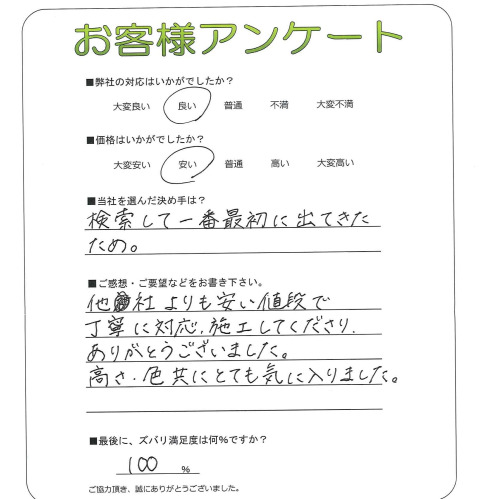 お客様アンケート
■弊社の対応はいかがでしたか？
大変良い 良い 普通 不満 大変不満
■価格はいかがでしたか？
大変安い 安い 普通 高い 大変高い
■当社を選んだ決め手は？
検索して一番最初に出てきた
ため。
■ご感想・ご要望などをお書き下さい。
他社よりも安い値段で
丁寧に対応、施工してくださり、
ありがとうございました。
高さ、色共にとても気に入りました。
■最後に、ズバリ満足度は何%ですか？
100 %
ご協力頂き、誠にありがとうございました。